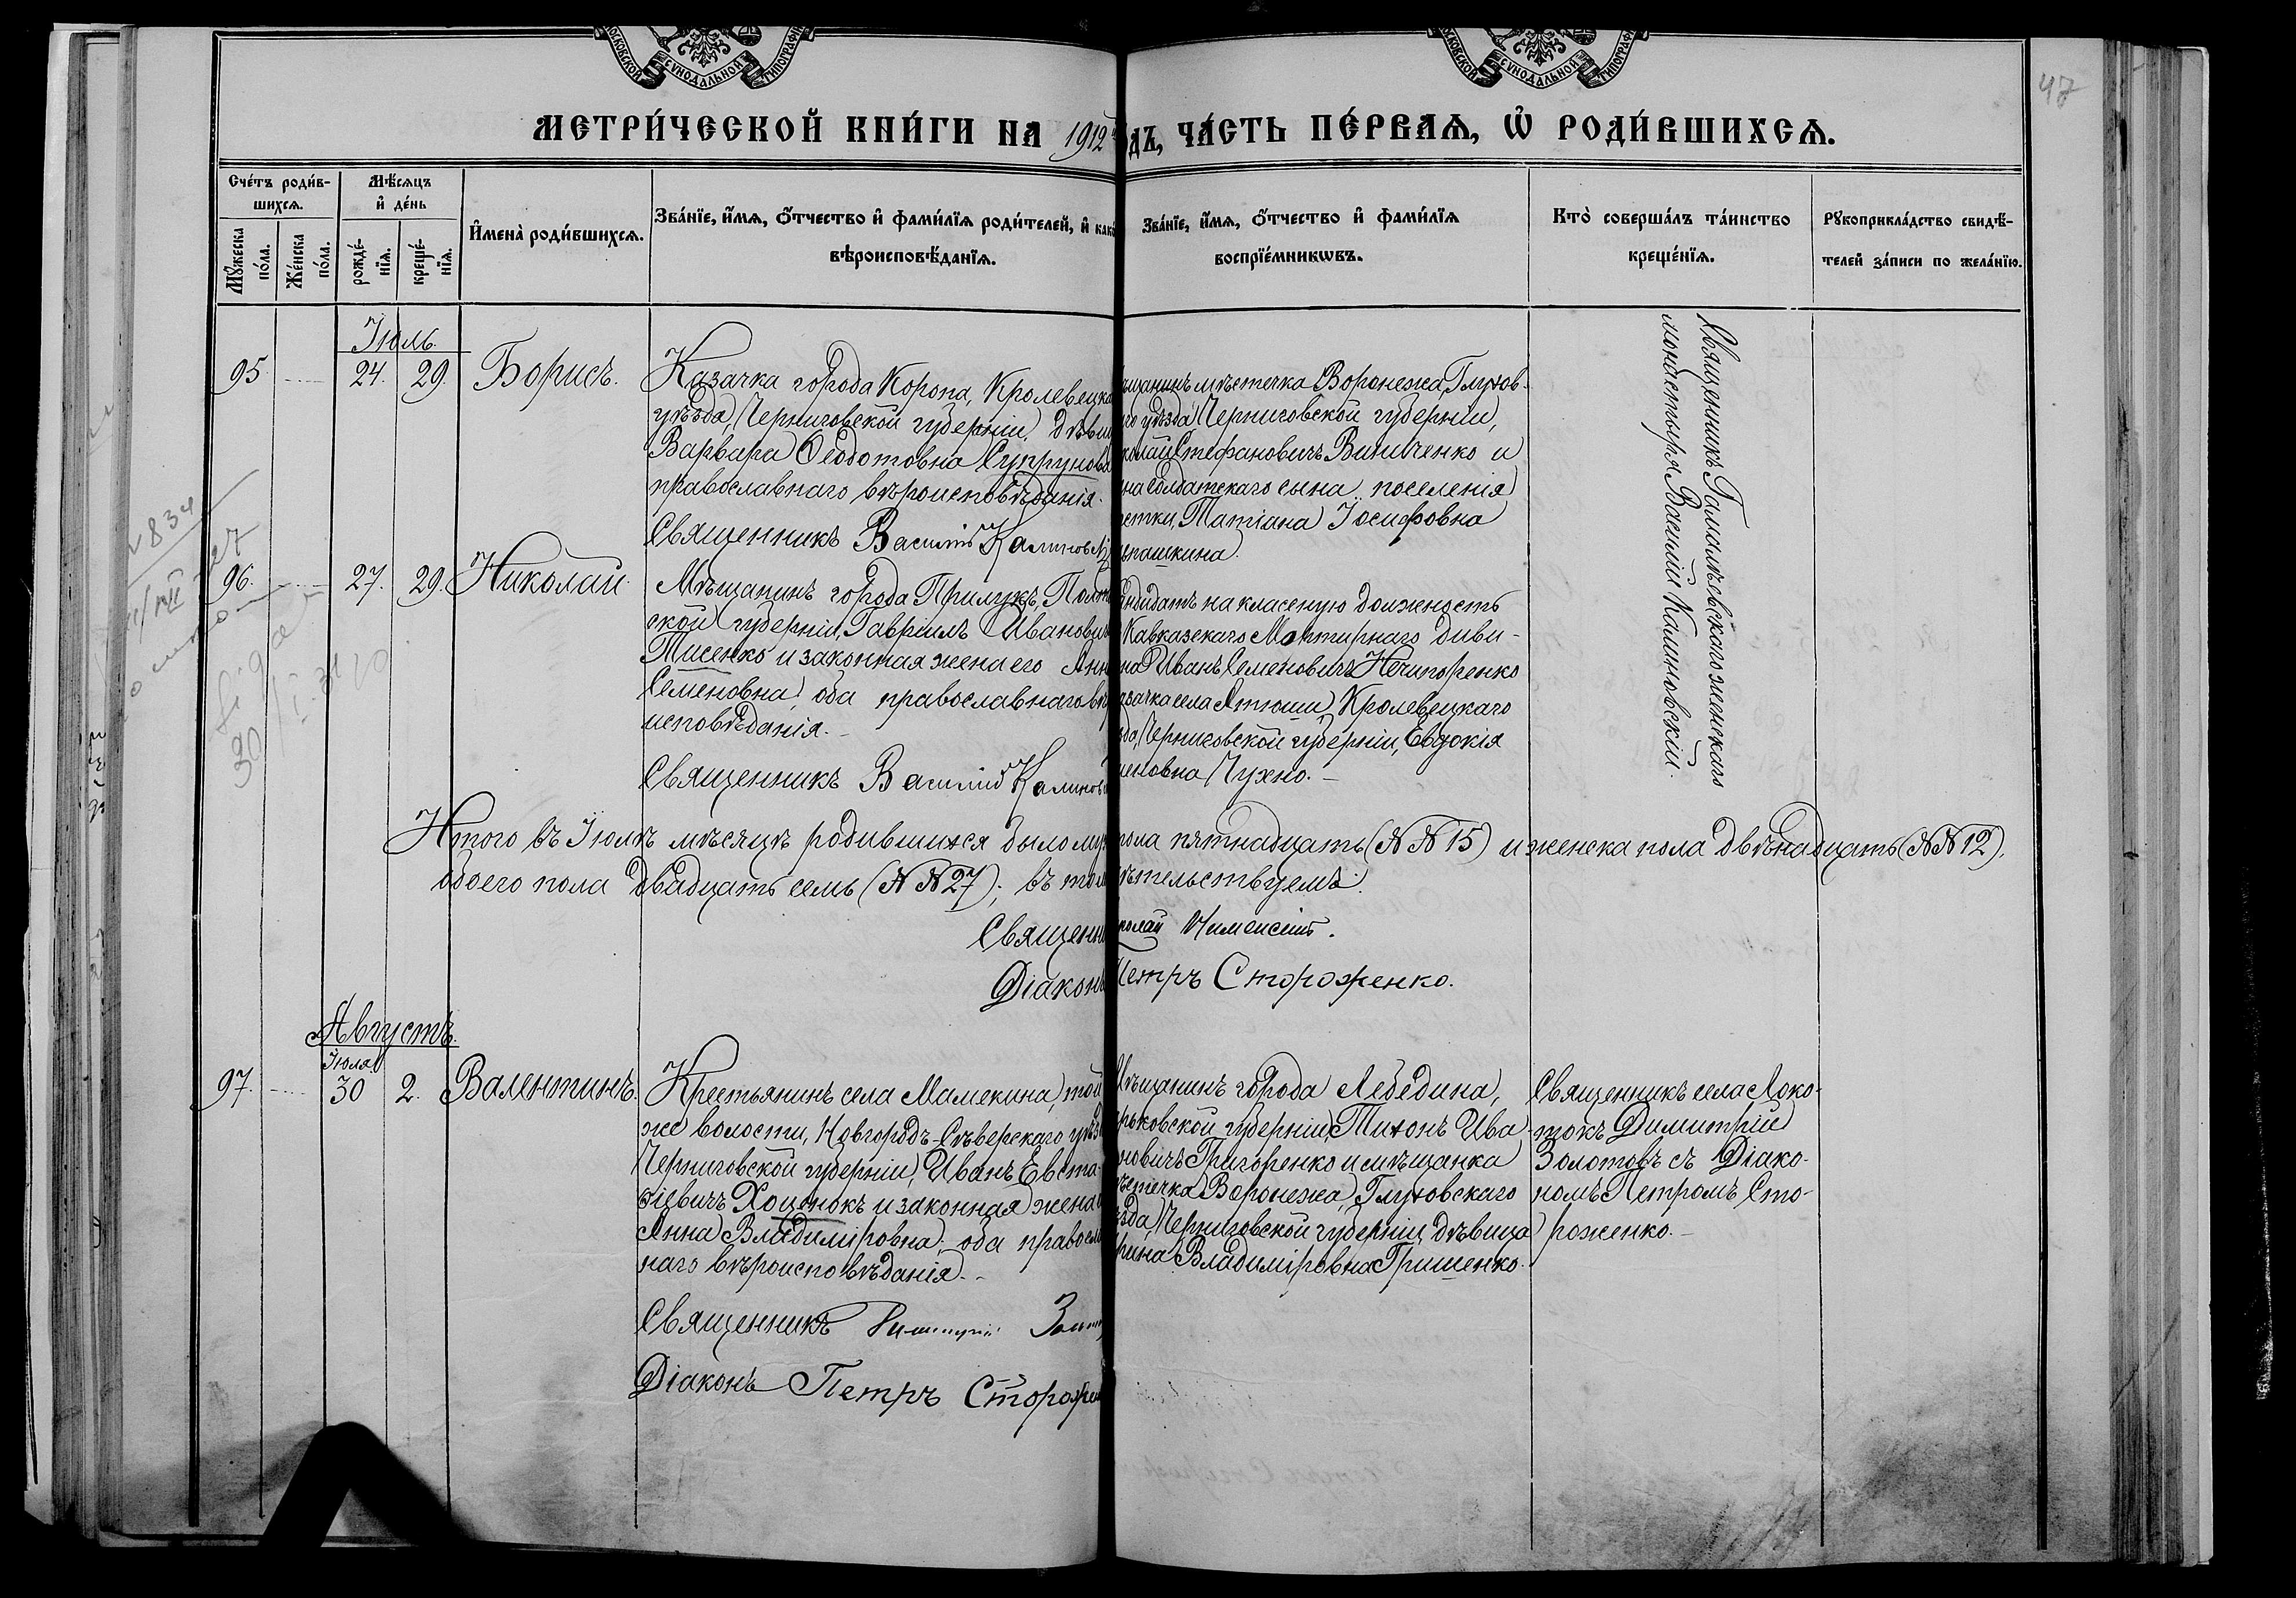 МОСКОВСКОЙ СѴНОДАЛЬНОЙ ТИПОГРАФІИ
МОСКОВСКОЙ СѴНОДАЛЬНОЙ ТИПОГРАФІИ
47
МЕТРИ́ЧЕСКОЙ КНИ́ГИ НА 1912 ДЪ, ЧА́СТЬ ПЕ́РВАѦ, Ѡ҆ РОДИ́ВШИХСѦ.
Сче́тъ роди́в-
шихсѧ.
Мꙋ́жеска по́ла.
Же́нска по́ла.
Мѣ́сѧцъ и҆ де́нь
рожде́-нїѧ.
креще́-нїѧ.
И҆мена̀ роди́вшихсѧ.
Зва́нїе, и҆́мѧ, ѻ҆́тчество и҆ фами́лїѧ роди́телей, и҆ како
вѣроисповѣ́данїѧ.
Зва́нїе, и҆́мѧ, ѻ҆́тчество и҆ фами́лїѧ
воспрїе́мникѡвъ.
Кто̀ соверша́лъ та́инство
креще́нїѧ.
Рꙋкоприкла́дство свидѣ́-
телей за́писи по жела́нїю.
Іюль.
95. 24. 29. Борисъ.
Казачка города Коропа, Кролевецка
уѣзда, Черниговской губерніи, дѣви
Варвара Ѳеодотовна Супрунова
православнаго вѣроисповѣданія.
Священникъ Василій Калиновск
щанинъ мѣстечка Воронежа, Глухов-
го уѣзда Черниговской губерніи,
колай Стефановичъ Винниченко и
на солдатскаго сына поселенія
стки, Татіана Іосифовна
пашкина.
Священникъ Гамалѣевскаго женскаго
монастыря Василій Калиновскій.
96. 27. 29. Николай.
Мѣщанинъ города Прилукъ, Полта
ской губерніи, Гавріилъ Ивановичъ
Тисенко и законная жена его Анн
Семеновна, оба православнаго вѣр
исповѣданія.
Священникъ Василій Калиновс
ндидатъ на класную должность
Кавказскаго Мортирнаго диви-
на Иванъ Семеновичъ Нечипоренко
зачка села Атюши, Кролевецкаго
да, Черниговской губерніи, Евдокія
меновна Чухно.
Итого въ Іюлѣ мѣсяцѣ родившихся было му пола пятнадцать (№№ 15) и женска пола двѣнадцать (№№ 12).
обоего пола двадцать семь (№№ 27); въ том ѣтельствуемъ.
Священн колай
Діаконъ Петръ Стороженко.
Августъ.
Іюля
97. 30 2. Валентинъ.
Крестьянинъ села Мамекина, той
же волости, Новгородъ-Сѣверскаго уѣз
Черниговской губерніи, Иванъ Евста-
ѳіевичъ Хоценокъ и законная жена
Анна Владиміровна; оба правосла
наго вѣроисповѣданія.
Священникъ Димитрій Золот
Діаконъ Петръ Сторожен
Мѣщанинъ города Лебедина,
рьковской губерніи, Тихонъ Ива-
новичъ Григоренко и мѣщанка
ѣстечка Воронежа, Глуховскаго
зда, Черниговской губерніи, дѣвица
рина Владиміровна Гришенко.
Священникъ села Локо-
токъ Димитрій
Золотовъ съ Діако-
номъ Петромъ Сто-
роженко.